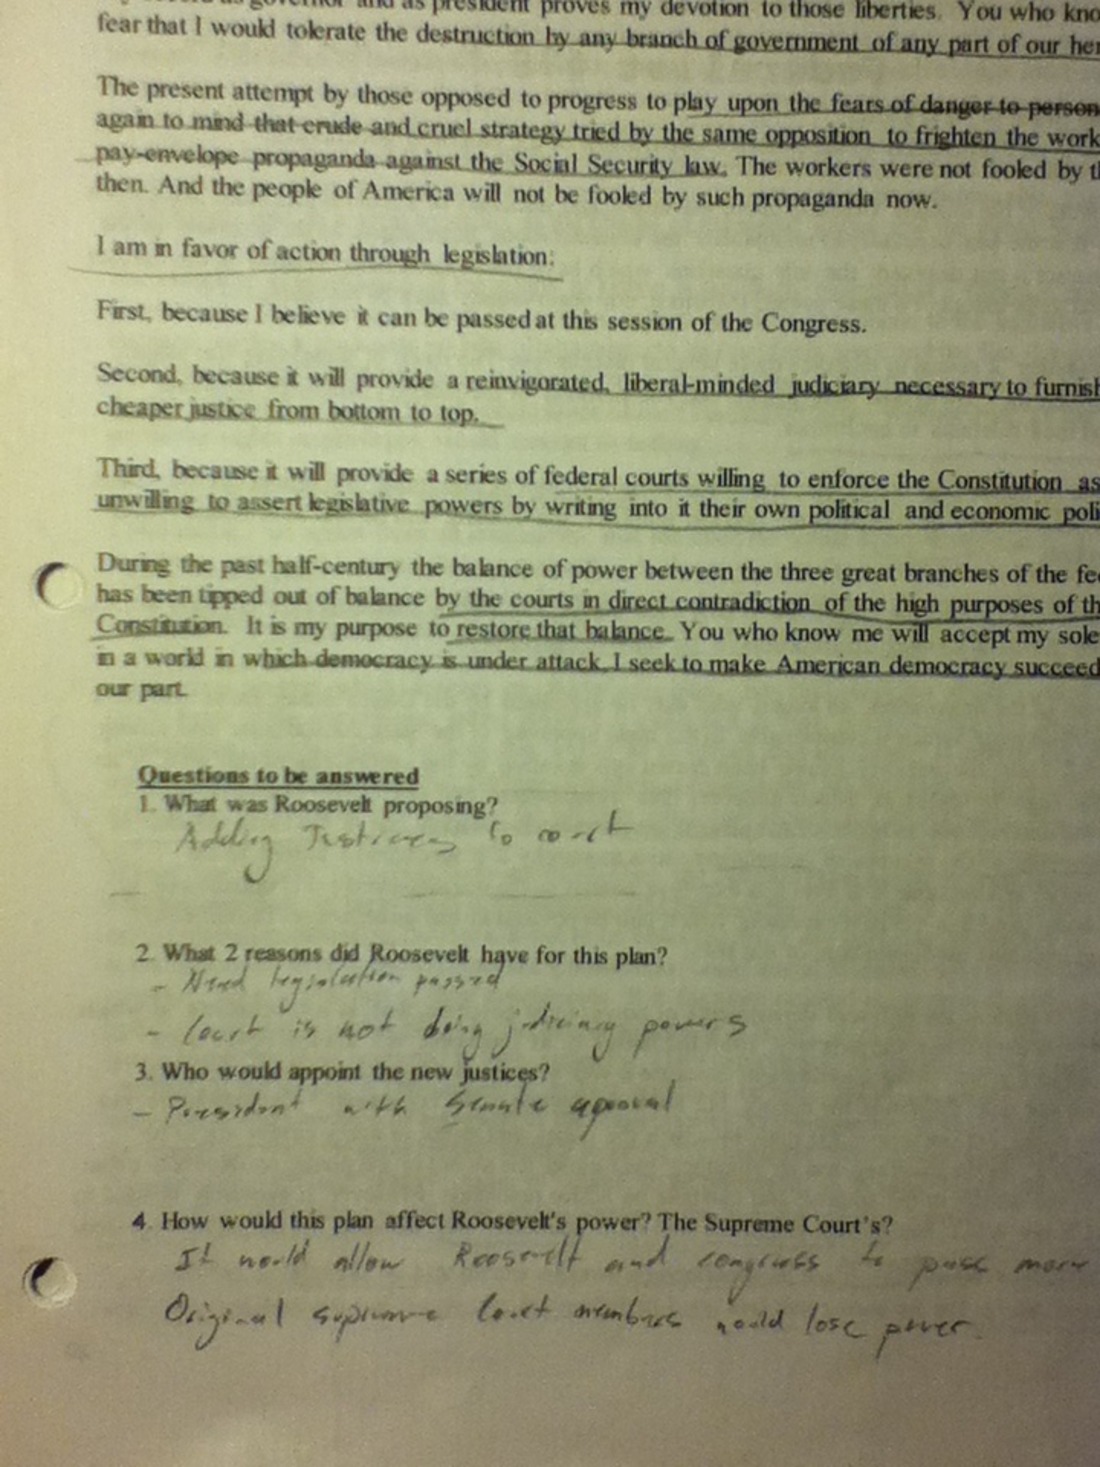 as governor and as president proves my devotion to those liberties. You who kno
fear that I would tolerate the destruction by any branch of government of any part of our her
The present attempt by those opposed to progress to play upon the fears of danger to person
again to mind that crude and cruel strategy tried by the same opposition to frighten the work
pay-envelope propaganda against the Social Security law. The workers were not fooled by th
then. And the people of America will not be fooled by such propaganda now.
I am in favor of action through legislation:
First, because I believe it can be passed at this session of the Congress.
Second, because it will provide a reinvigorated, liberal-minded judiciary necessary to furnish
cheaper justice from bottom to top.
Third, because it will provide a series of federal courts willing to enforce the Constitution as
unwilling to assert legislative powers by writing into it their own political and economic poli
During the past half-century the balance of power between the three great branches of the fe
has been tipped out of balance by the courts in direct contradiction of the high purposes of th
Constitution. It is my purpose to restore that balance. You who know me will accept my sole
in a world in which democracy is under attack, I seek to make American democracy succeed
our part.
Questions to be answered
1. What was Roosevelt proposing?
Adding Justices to court
2. What 2 reasons did Roosevelt have for this plan?
- Need legislation passed
- Court is not doing judiciary powers
3. Who would appoint the new justices?
- President with Senate aproval
4. How would this plan affect Roosevelt's power? The Supreme Court's?
It would allow Roosevelt and congress to pass more
Original supreme Court members would lose power.